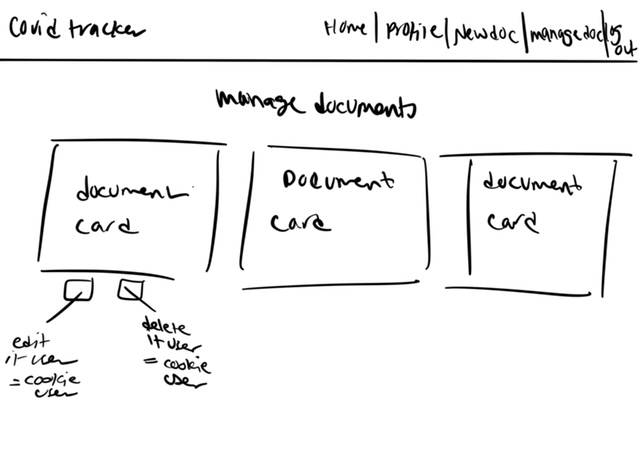 Covid tracker
Home | Profile | New doc | manage doc | log out
manage documents
document card
Document card
document card
edit
if user
= cookie
user
delete
if user
= cookie
user